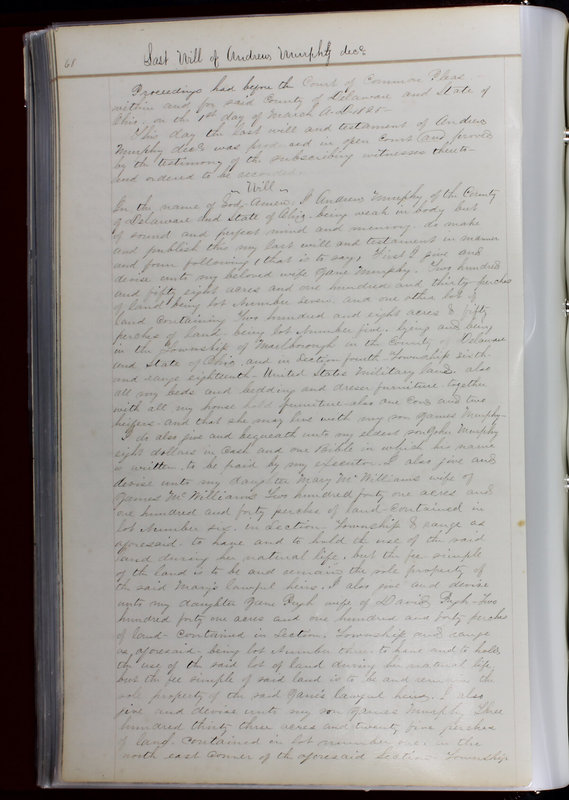 68
Last Will of Andrew Murphy decd.
Proceedings had before the Court of Common Pleas
within and for said County of Delaware and State of
Ohio. on the 1st day of March A.D. 1825 -
This day the last will and testament of Andrew
Murphy decd was produced in open Court and proved
by the testimony of the subscribing witnesses thereto -
and ordered to be recorded -
Will
In the name of God, Amen. I Andrew Murphy of the County
of Delaware and State of Ohio. being weak in body but
of sound and perfect mind and memory. do make
and publish this my last will and testament in manner
and form following, that is to say, First I give and
devise unto my beloved wife Jane Murphy. Two hundred
and fifty eight acres and one hundred and thirty perches
of land being lot Number seven. and one other lot of
land Containing Two hundred and eight acres & fifty
perches of land. being lot Number five. lying and being
in the Township of Marlborough in the County of Delaware
and State of Ohio. and in Section fourth Township sixth
and range eighteenth - United States Military land. also
all my beds and bedding and dresser furniture together
with all my house hold furniture - also one Cow and two
heifers - and that she may live with my son James Murphy -
I do also give and bequeath unto my eldest son John Murphy
eight dollars in Cash and one Bible in which his name
is written. to be paid by my executor. I also give and
devise unto my daughter Mary McWilliams wife of
James McWilliams Two hundred forty one acres and
one hundred and forty perches of land - Contained in
lot Number six. in Section. Township & range as
aforesaid. to have and to hold the use of the said
land during her natural life, but the fee simple
of the land is to be and remain the sole property of
the said Mary's lawful heirs. I also give and devise
unto my daughter Jane Pugh wife of David Pugh. Two
hundred forty one acres and one hundred and forty perches
of land - Contained in Section. Township and range
as aforesaid - being lot Number three. to have and to hold
the use of the said lot of land during her natural life,
but the fee simple of said land is to be and remain the
sole property of the said Jane's lawful heirs. I also
give and devise unto my son James Murphy. Three
hundred thirty three acres and twenty five perches
of land. Contained in lot number one. in the
north east Corner of the aforesaid Section. Township